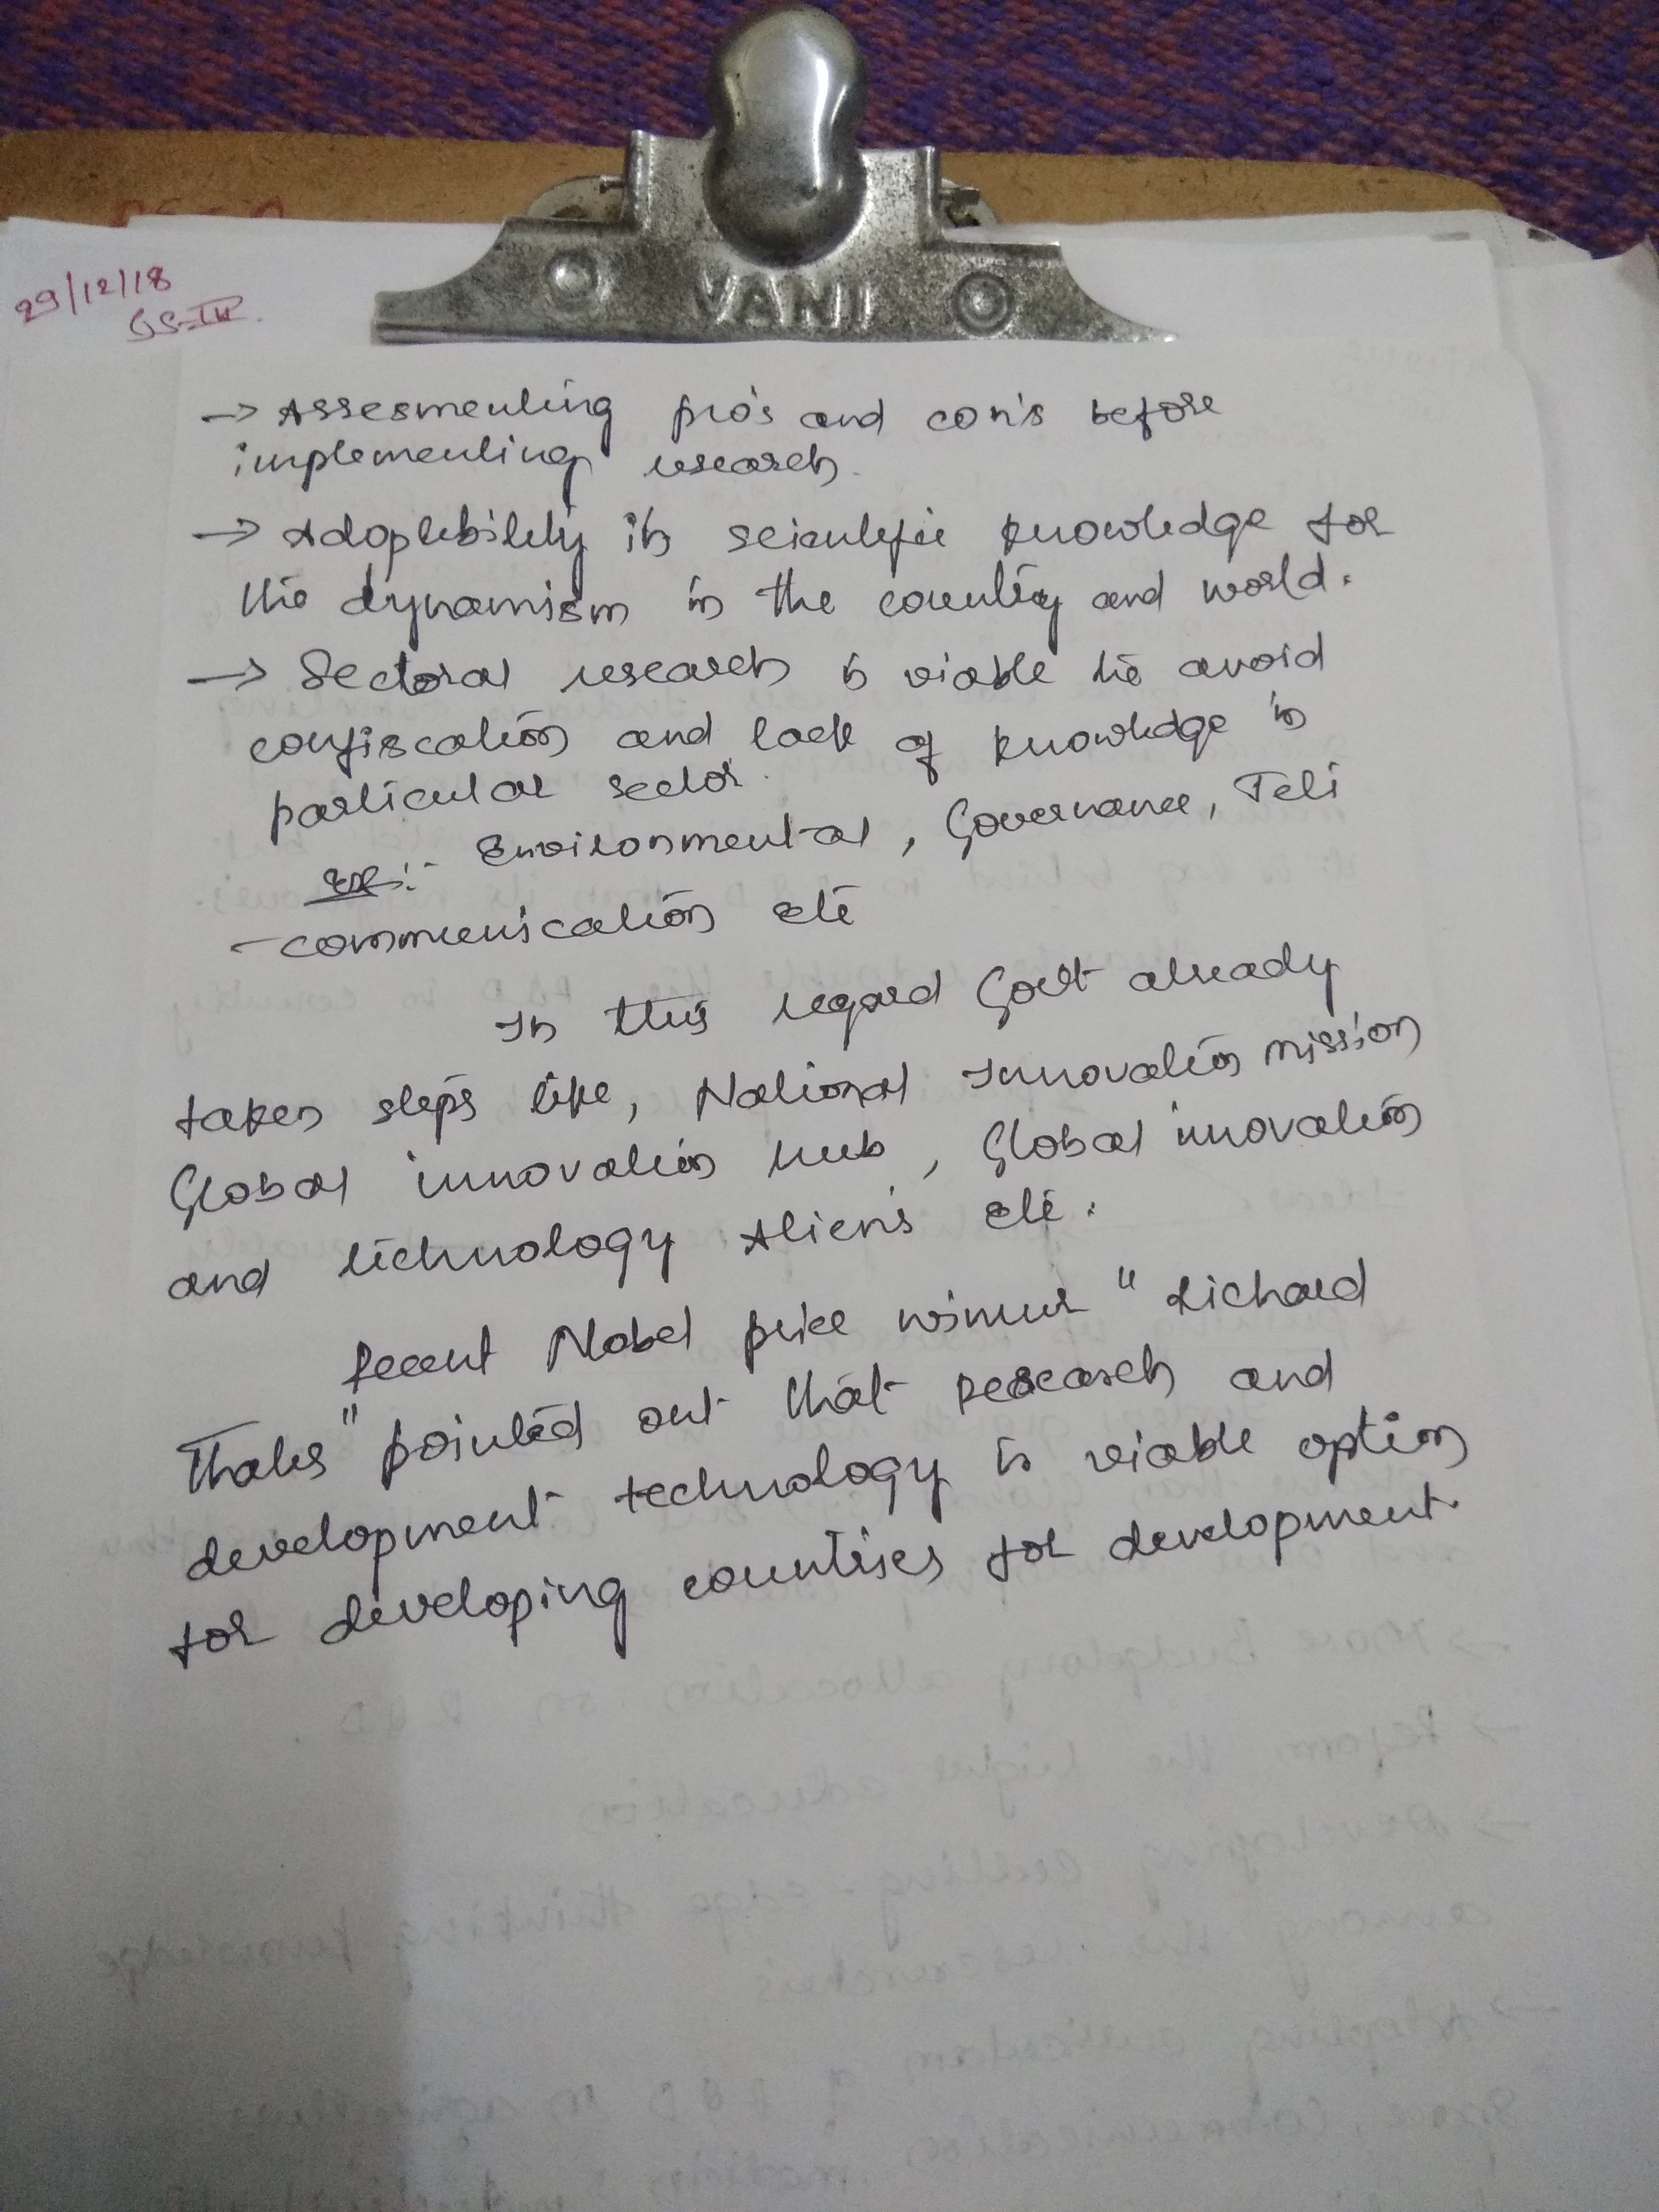 29/12/18
GS-III
VANI
→ Assesmenting pro's and con's before
implementing research.
→ Adoptebility in scientific knowledge for
the dynamism in the country and world.
→ Sectoral research is viable to avoid
confiscation and lack of knowledge in
particular sector.
Ex:- Environmental, Governance, Teli
-communication etc
In this regard Govt already
taken steps like, National Innovation mission
Global innovation hub, Global innovation
and technology Alien's etc.
Recent Nobel price winner "Richard
Thales" pointed out that research and
development technology is viable option
for developing countries for development.